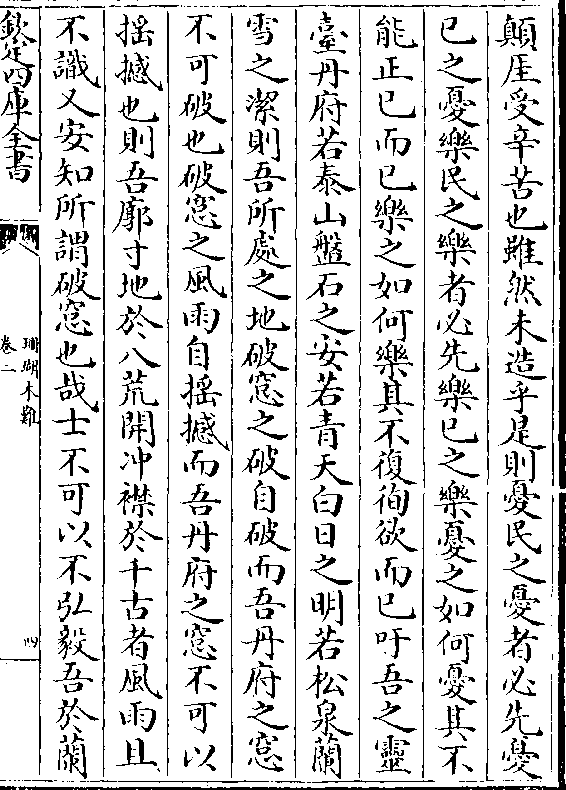 顛厓受辛苦也雖然未造乎是則憂民之憂者必先憂
已之憂樂民之樂者必先樂已之樂憂之如何憂其不
能正已而已樂之如何樂其不復徇欲而已吁吾之靈
臺丹府若泰山盤石之安若青天白日之明若松泉蘭
雪之潔則吾所處之地破窓之破自破而吾丹府之窓
不可破也破窓之風雨自揺撼而吾丹府之窓不可以
揺撼也則吾廓寸地於八荒開冲襟於千古者風雨且
不識又安知所謂破窓也哉士不可以不弘毅吾於蘭
欽定四庫全書
珊瑚木難
卷二
四